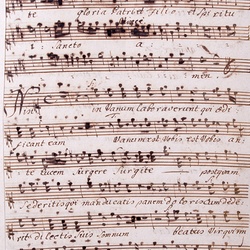 te gloria Patri et filio et spiritu
Sancto a
men.
Nisi in Vanum laboraverunt qui ædi
ficant eam Vanum est Vobis est Vobis an
te lucem Surgere Surgite postquam
Sederitis qui manducatis panem doloris cum dede
rit dilectis Suis Somnum beatus Vir qui im